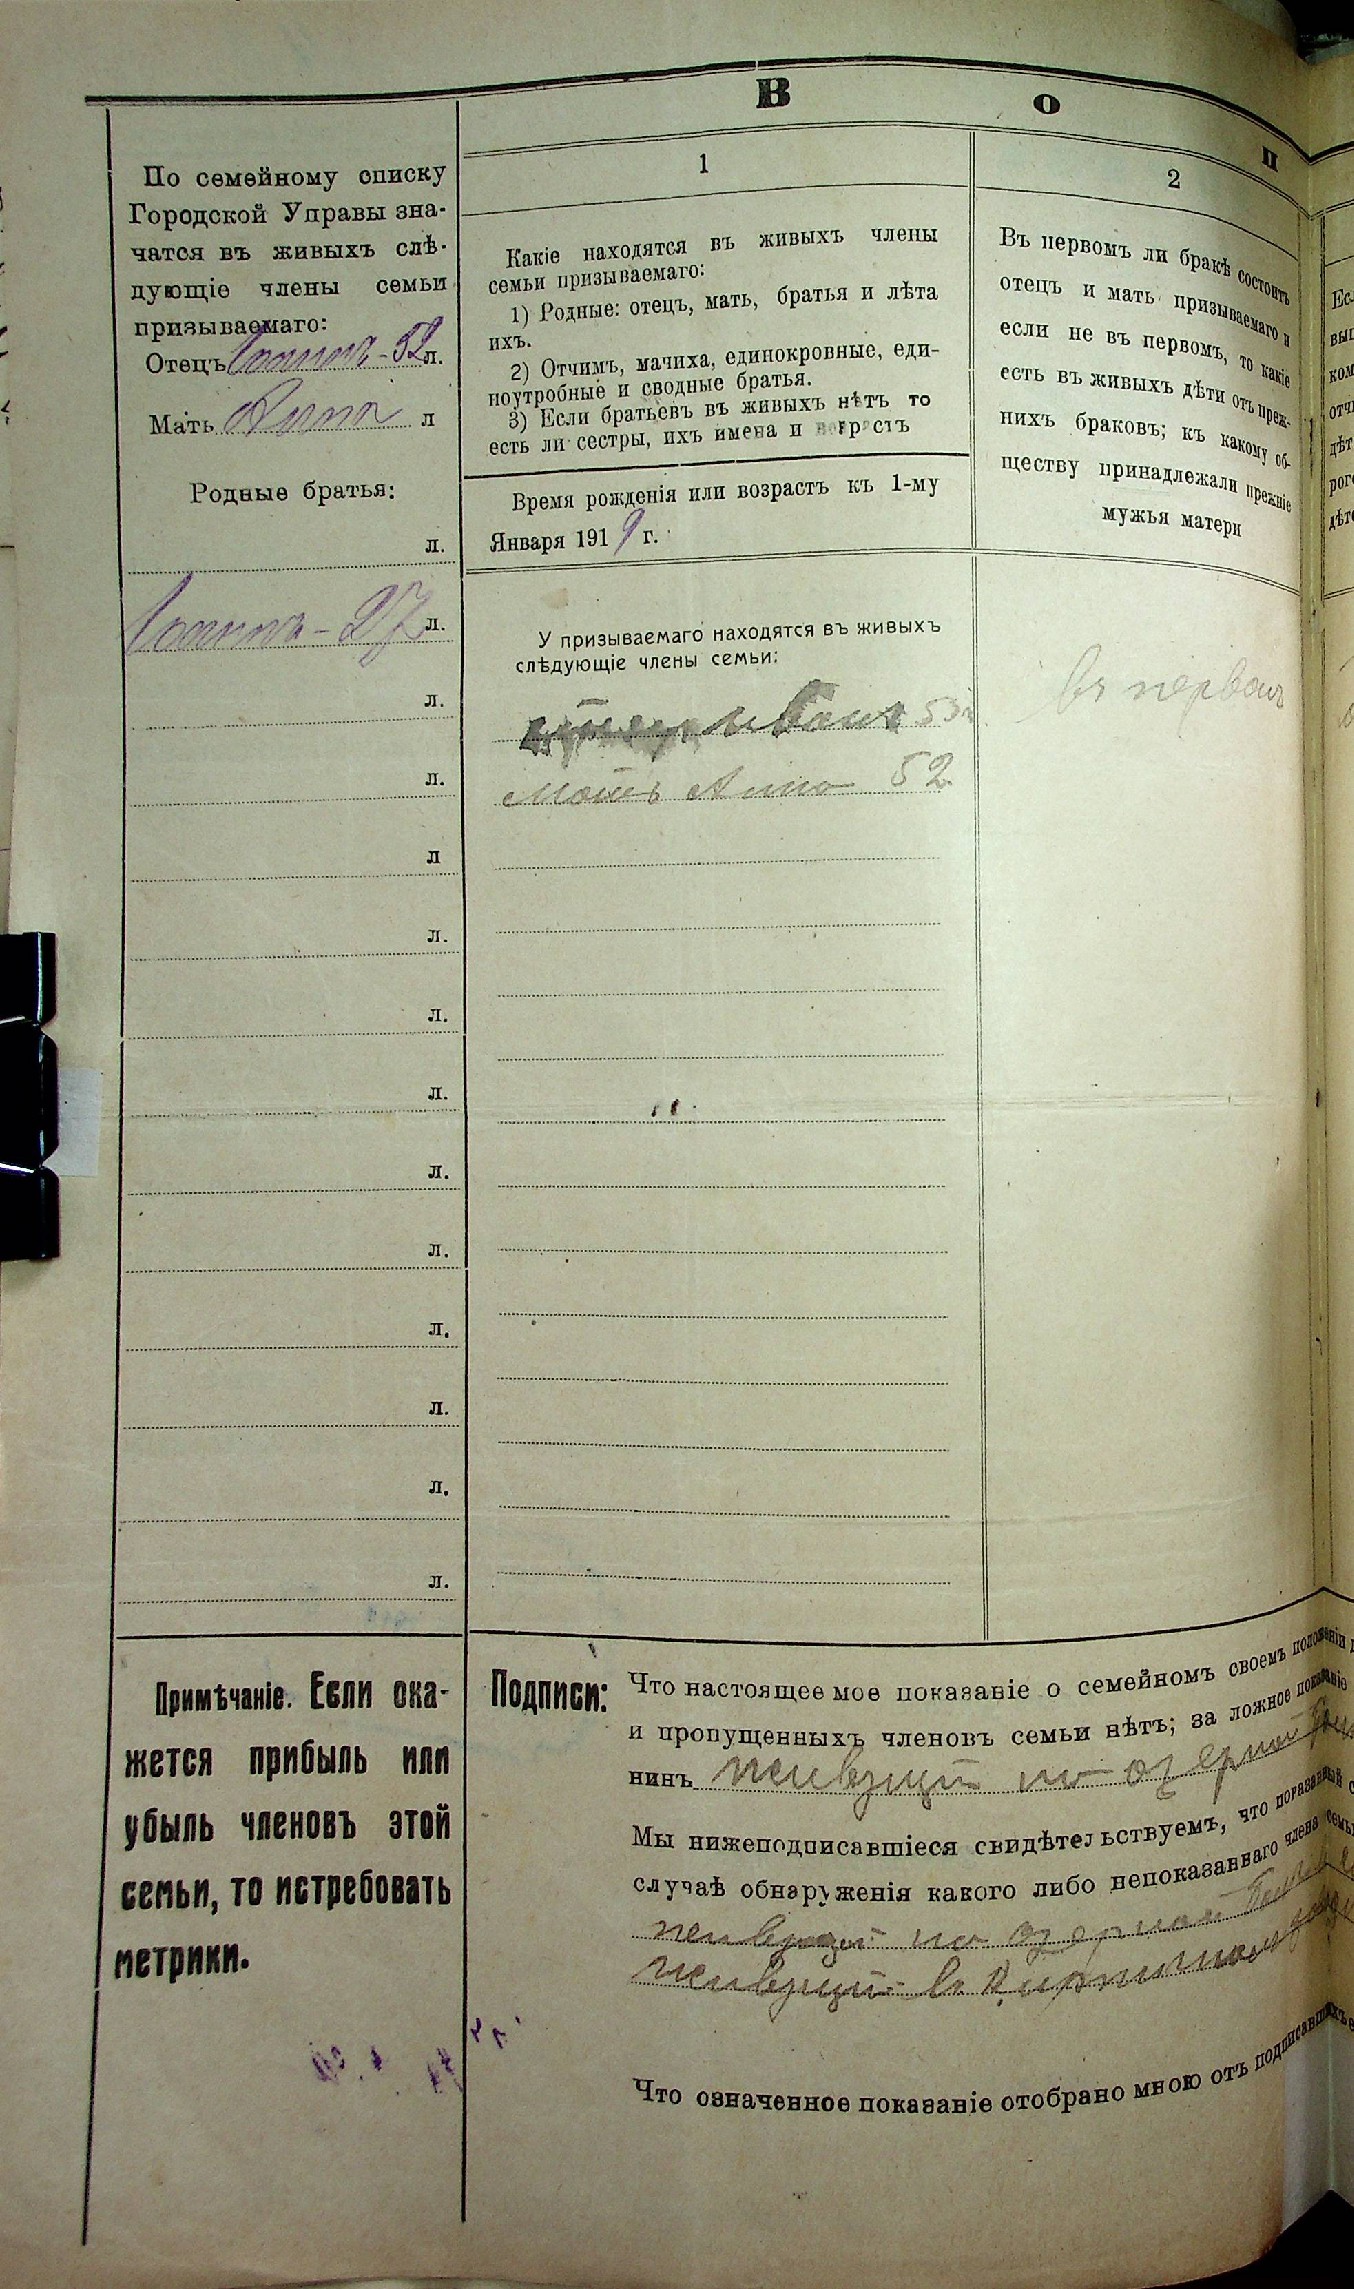 В о п
По семейному списку
Городской Управы зна-
чатся въ живыхъ слѣ-
дующіе члены семьи
призываемаго:
Отецъ Іоаннъ - 52 л.
Мать Анна л
Родные братья:
л.
Іоаннъ - 27 л.
л.
л.
л
л.
л.
л.
л.
л.
л.
л.
л.
л.
Примѣчаніе. Если ока-
жется прибыль или
убыль членовъ этой
семьи, то истребовать
метрики.
1
Какіе находятся въ живыхъ члены
семьи призываемаго:
1) Родные: отецъ, мать, братья и лѣта
ихъ.
2) Отчимъ, мачиха, единокровные, еди-
ноутробные и сводные братья.
3) Если братьевъ въ живыхъ нѣтъ то
есть ли сестры, ихъ имена и возрастъ
Время рожденія или возрастъ къ 1-му
Января 1919 г.
У призываемаго находятся въ живыхъ
слѣдующіе члены семьи:
отец Иван 53
Мать Анна 52
2
Въ первомъ ли бракѣ состоитъ
отецъ и мать призываемаго и
если не въ первомъ, то какіе
есть въ живыхъ дѣти отъ преж-
нихъ браковъ; къ какому об-
ществу принадлежали прежніе
мужья матери
въ первомъ
Ес-
выш
ком
отчи
дѣт
рого
дѣте
Подписи: Что настоящее мое показаніе о семейномъ своемъ положеніи
и пропущенныхъ членовъ семьи нѣтъ; за ложное показаніе
нинъ живущий по озерной
Мы нижеподписавшіеся свидѣтельствуемъ, что показанный
случаѣ обнаруженія какого либо непоказаннаго члена семьи
живущий по озерной
живущий в
Что означенное показаніе отобрано мною отъ подписавшихъ